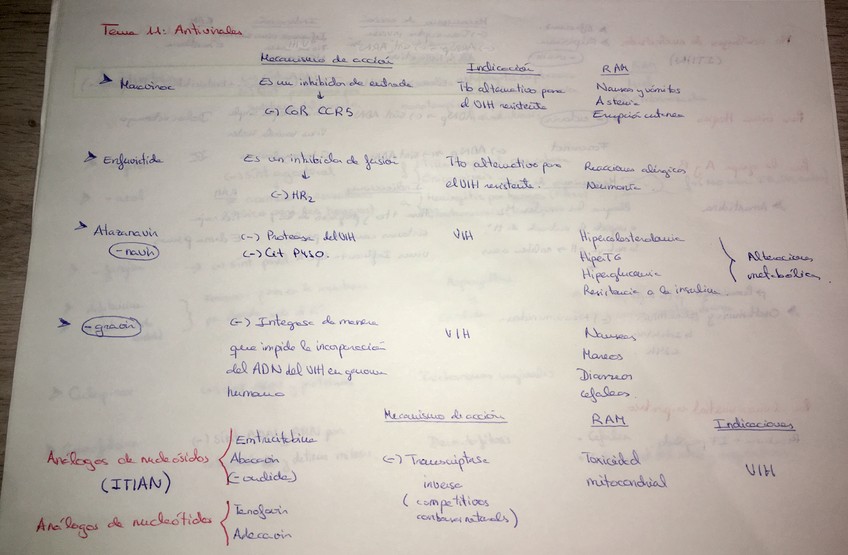 Tema 11: Antivirales
Mecanismo de acción Indicación RAM
Maraviroc Es un inhibidor de entrada Tto alternativo para Nauseas y vómitos
↓ el VIH resistente Astenia
(-) CoR CCR5 Erupción cutanea
Enfuvirtida Es un inhibidor de fusión Tto alternativo para Reacciones alérgicas
↓ el VIH resistente. Neumonía
(-) HR2
Atazanavir (-) Proteasa del VIH VIH Hipercolesterolemia
(-navir) (-) Cit P450. HiperTG Alteraciones
Hiperglucemia metabólicas
Resistencia a la insulina
-gravir (-) Integrasa de manera VIH Nauseas
que impide la incorporación Mareos
del ADN del VIH en genoma Diarreas
humano Cefaleas
Mecanismo de acción RAM Indicaciones
Análogos de nucleósidos Emtricitabina
(ITIAN) Abacavir (-) Transcriptasa Toxicidad VIH
inversa mitocondrial
(competitivos
con bases naturals)
Análogos de nucleótidos Tenofovir
Adefovir